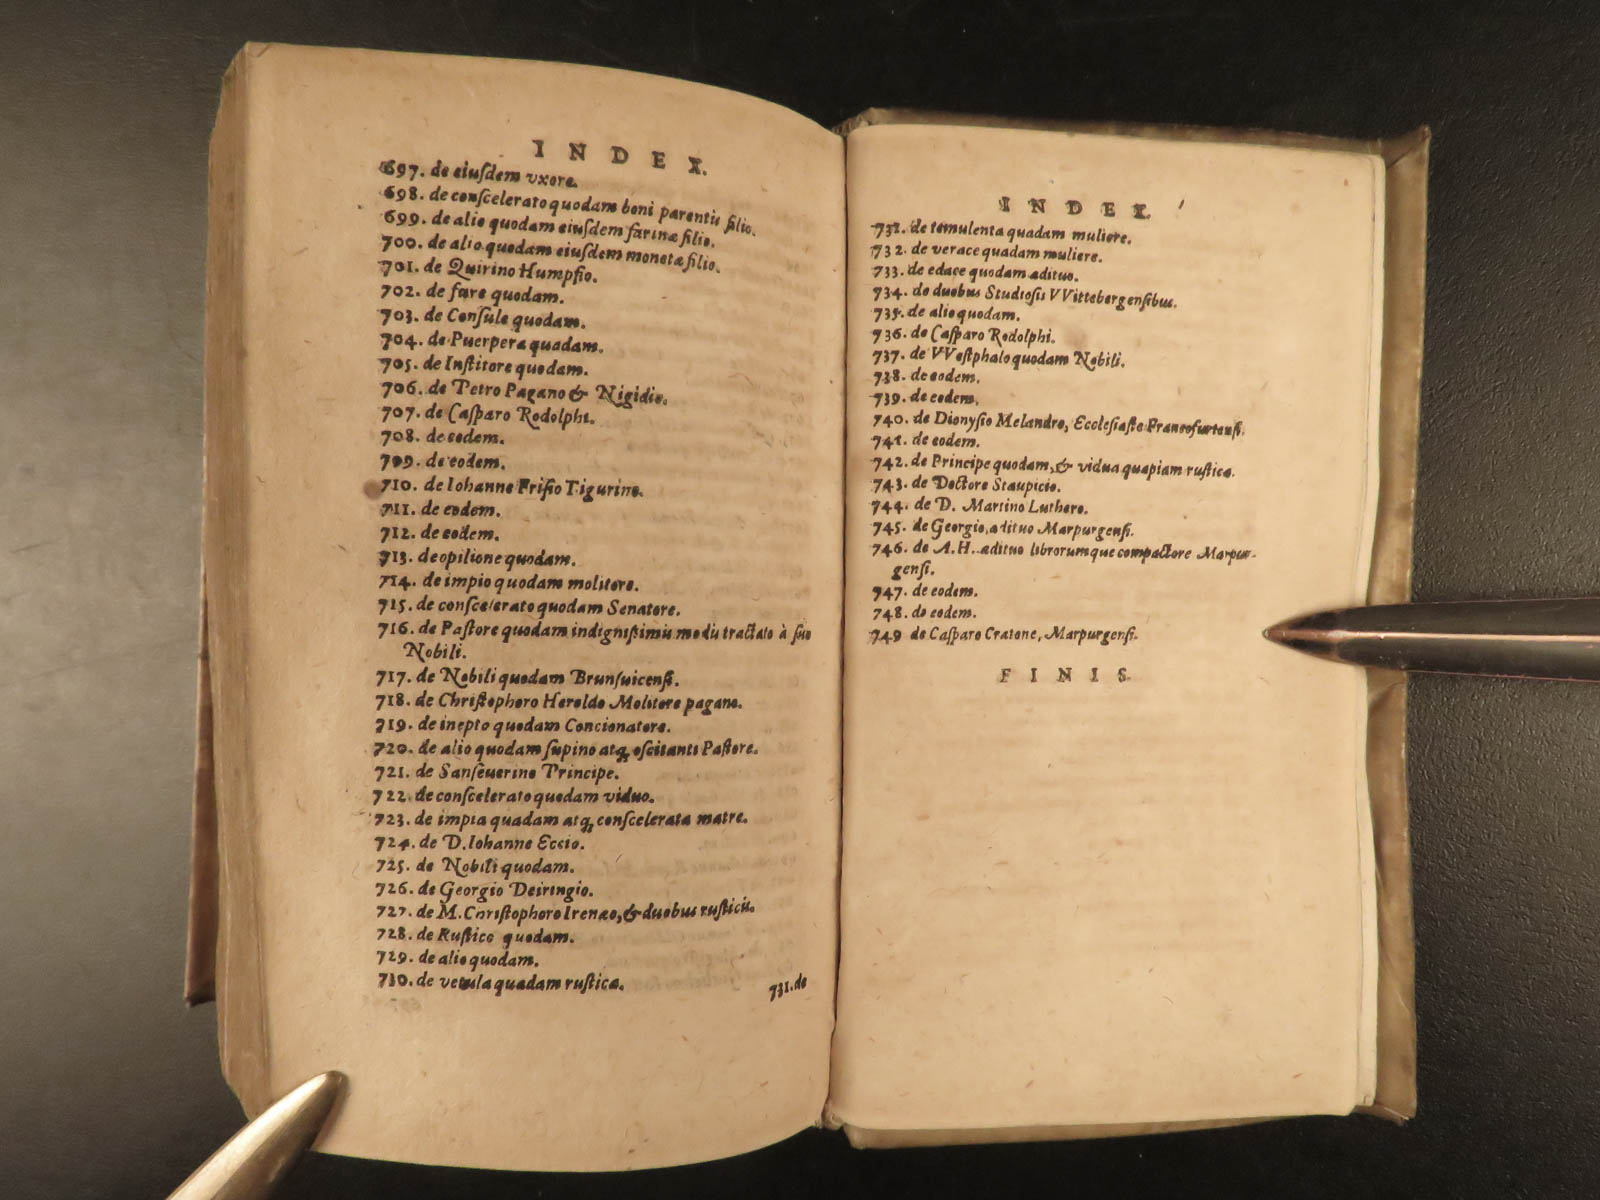 INDEX.
697. de eiuſdem vxore.
698. de conſcelerato quodam boni parentis filio.
699. de alio quodam eiuſdem farinæ filio.
700. de alio quodam eiuſdem monetæ filio.
701. de Quirino Humpfio.
702. de fure quodam.
703. de Conſule quodam.
704. de Puerpera quadam.
705. de Inſtitore quodam.
706. de Petro Pagano & Nigidio.
707. de Caſparo Rodolphi.
708. de eodem.
709. de eodem.
710. de Iohanne Friſio Tigurino.
711. de eodem.
712. de eodem.
713. de opilione quodam.
714. de impio quodam molitore.
715. de conſcelerato quodam Senatore.
716. de Paſtore quodam indigniſſimis modis tractato à ſuo
Nobili.
717. de Nobili quodam Brunſuicenſi.
718. de Chriſtophoro Heroldo Molitore pagano.
719. de inepto quodam Concionatore.
720. de alio quodam ſupino atq; oſcitanti Paſtore.
721. de Sanſeuerino Principe.
722. de conſcelerato quodam viduo.
723. de impia quadam atq; conſcelerata matre.
724. de D. Iohanne Eccio.
725. de Nobili quodam.
726. de Georgio Deiringio.
727. de M. Chriſtophoro Irenæo, & duobus ruſticis.
728. de Ruſtico quodam.
729. de alio quodam.
730. de vetula quadam ruſtica.
731. de
INDEX.
731. de temulenta quadam muliere.
732. de verace quadam muliere.
733. de edace quodam ædituo.
734. de duobus Studioſis VVittebergenſibus.
735. de alio quodam.
736. de Caſparo Rodolphi.
737. de VVeſtphalo quodam Nobili.
738. de eodem.
739. de eodem.
740. de Dionyſio Melandro, Eccleſiaſte Francofurtenſi.
741. de eodem.
742. de Principe quodam, & vidua quapiam ruſtica.
743. de Doctore Staupicio.
744. de D. Martino Luthero.
745. de Georgio, ædituo Marpurgenſi.
746. de A. H. ædituo librorumque compactore Marpur-
genſi.
747. de eodem.
748. de eodem.
749 de Caſparo Cratone, Marpurgenſi.
FINIS.